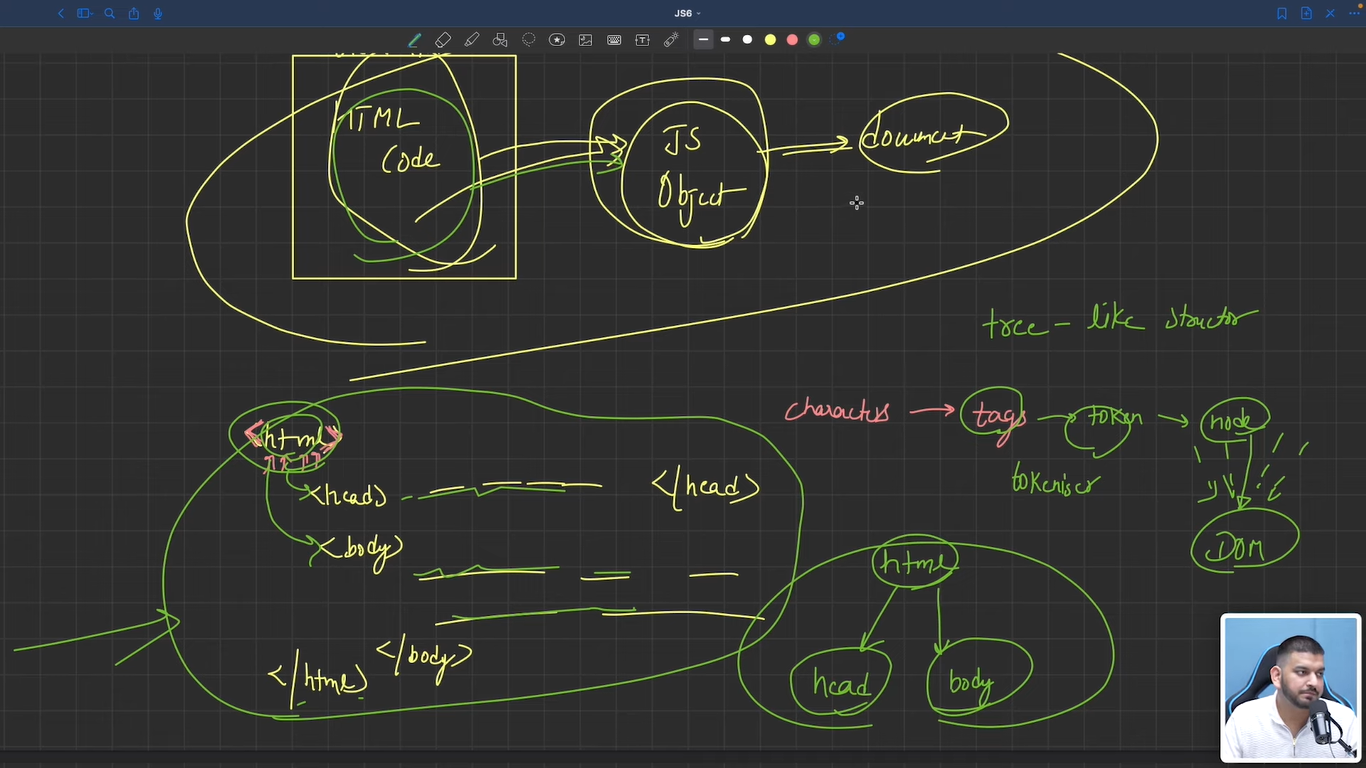 JS6
HTML
Code
JS
Object
document
tree - like structor
characters → tags → token → node
tokeniser
DOM
<html>
<head>
</head>
<body>
</body>
</html>
html
head
body